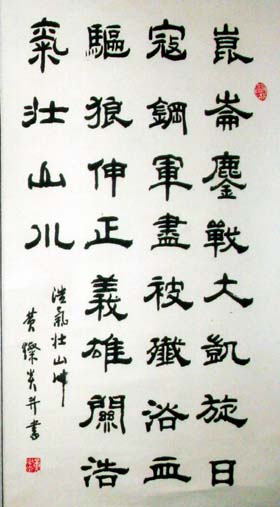 崑崙鏖戰大凱旋日
寇鋼軍盡被殲浴血
驅狼伸正義雄關浩
氣壯山川
浩氣壯山
黄燦炎并書